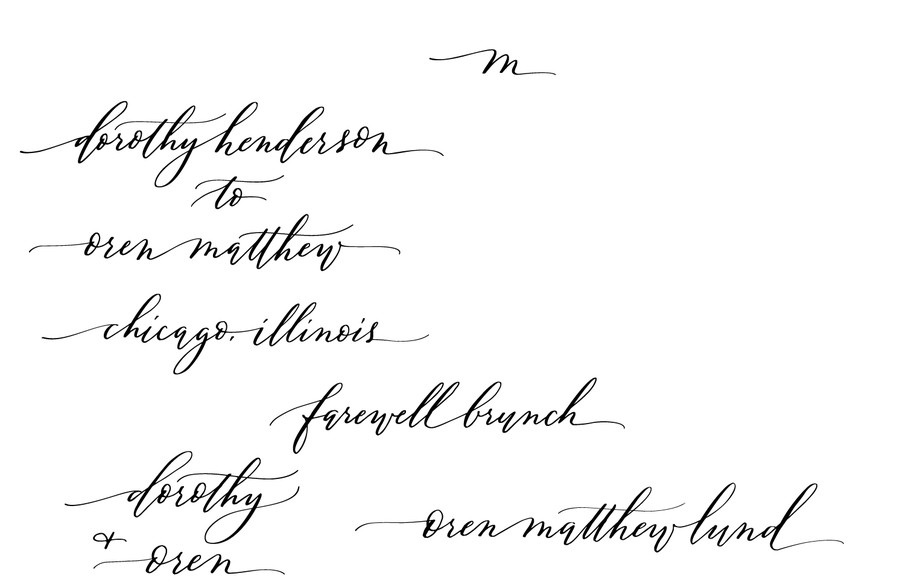 m
dorothy henderson
to
oren matthew
chicago. illinois
farewell brunch
dorothy
& oren
oren matthew lund